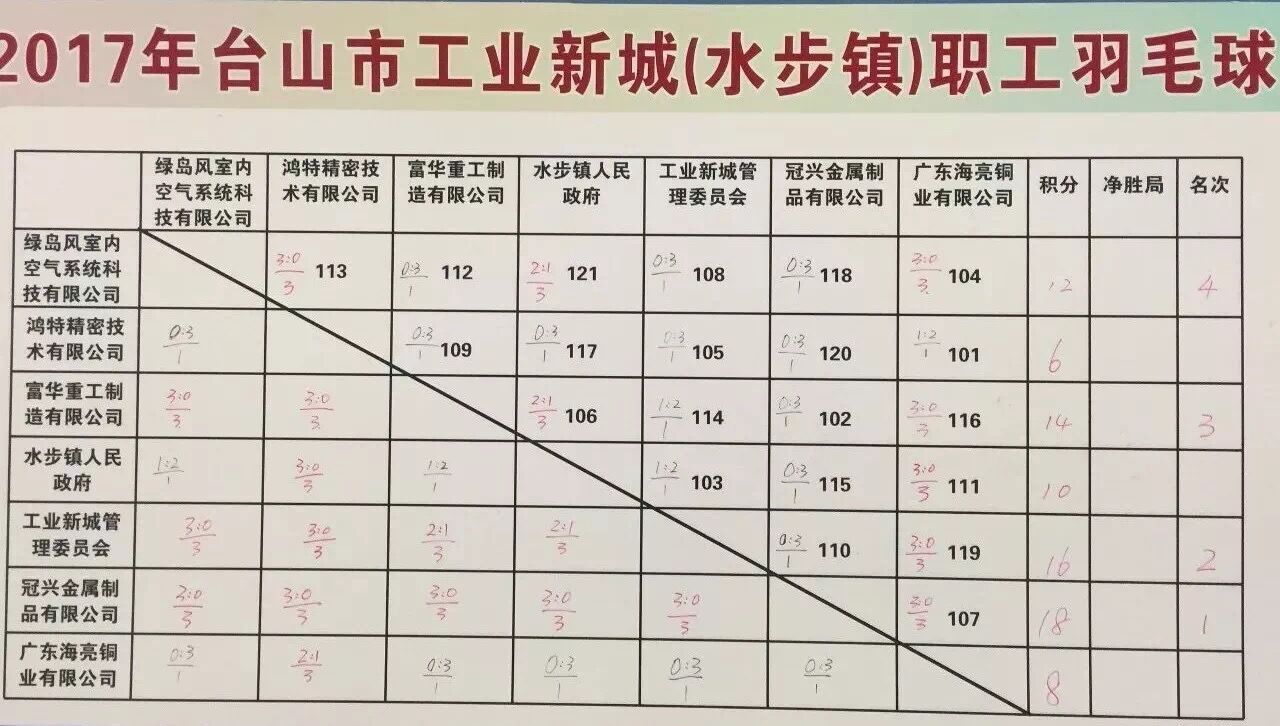 2017年台山市工业新城(水步镇)职工羽毛球
绿岛风室内
空气系统科
技有限公司
鸿特精密技
术有限公司
富华重工制
造有限公司
水步镇人民
政府
工业新城管
理委员会
冠兴金属制
品有限公司
广东海亮铜
业有限公司
积分
净胜局
名次
绿岛风室内
空气系统科
技有限公司
3:0
3
113
0:3
1
112
2:1
3
121
0:3
1
108
0:3
1
118
3:0
3
104
12
4
鸿特精密技
术有限公司
0:3
1
0:3
1
109
0:3
1
117
0:3
1
105
0:3
1
120
1:2
1
101
6
富华重工制
造有限公司
3:0
3
3:0
3
2:1
3
106
1:2
1
114
0:3
1
102
3:0
3
116
14
3
水步镇人民
政府
1:2
1
3:0
3
1:2
1
1:2
1
103
0:3
1
115
3:0
3
111
10
工业新城管
理委员会
3:0
3
3:0
3
2:1
3
2:1
3
0:3
1
110
3:0
3
119
16
2
冠兴金属制
品有限公司
3:0
3
3:0
3
3:0
3
3:0
3
3:0
3
3:0
3
107
18
1
广东海亮铜
业有限公司
0:3
1
2:1
3
0:3
1
0:3
1
0:3
1
0:3
1
8